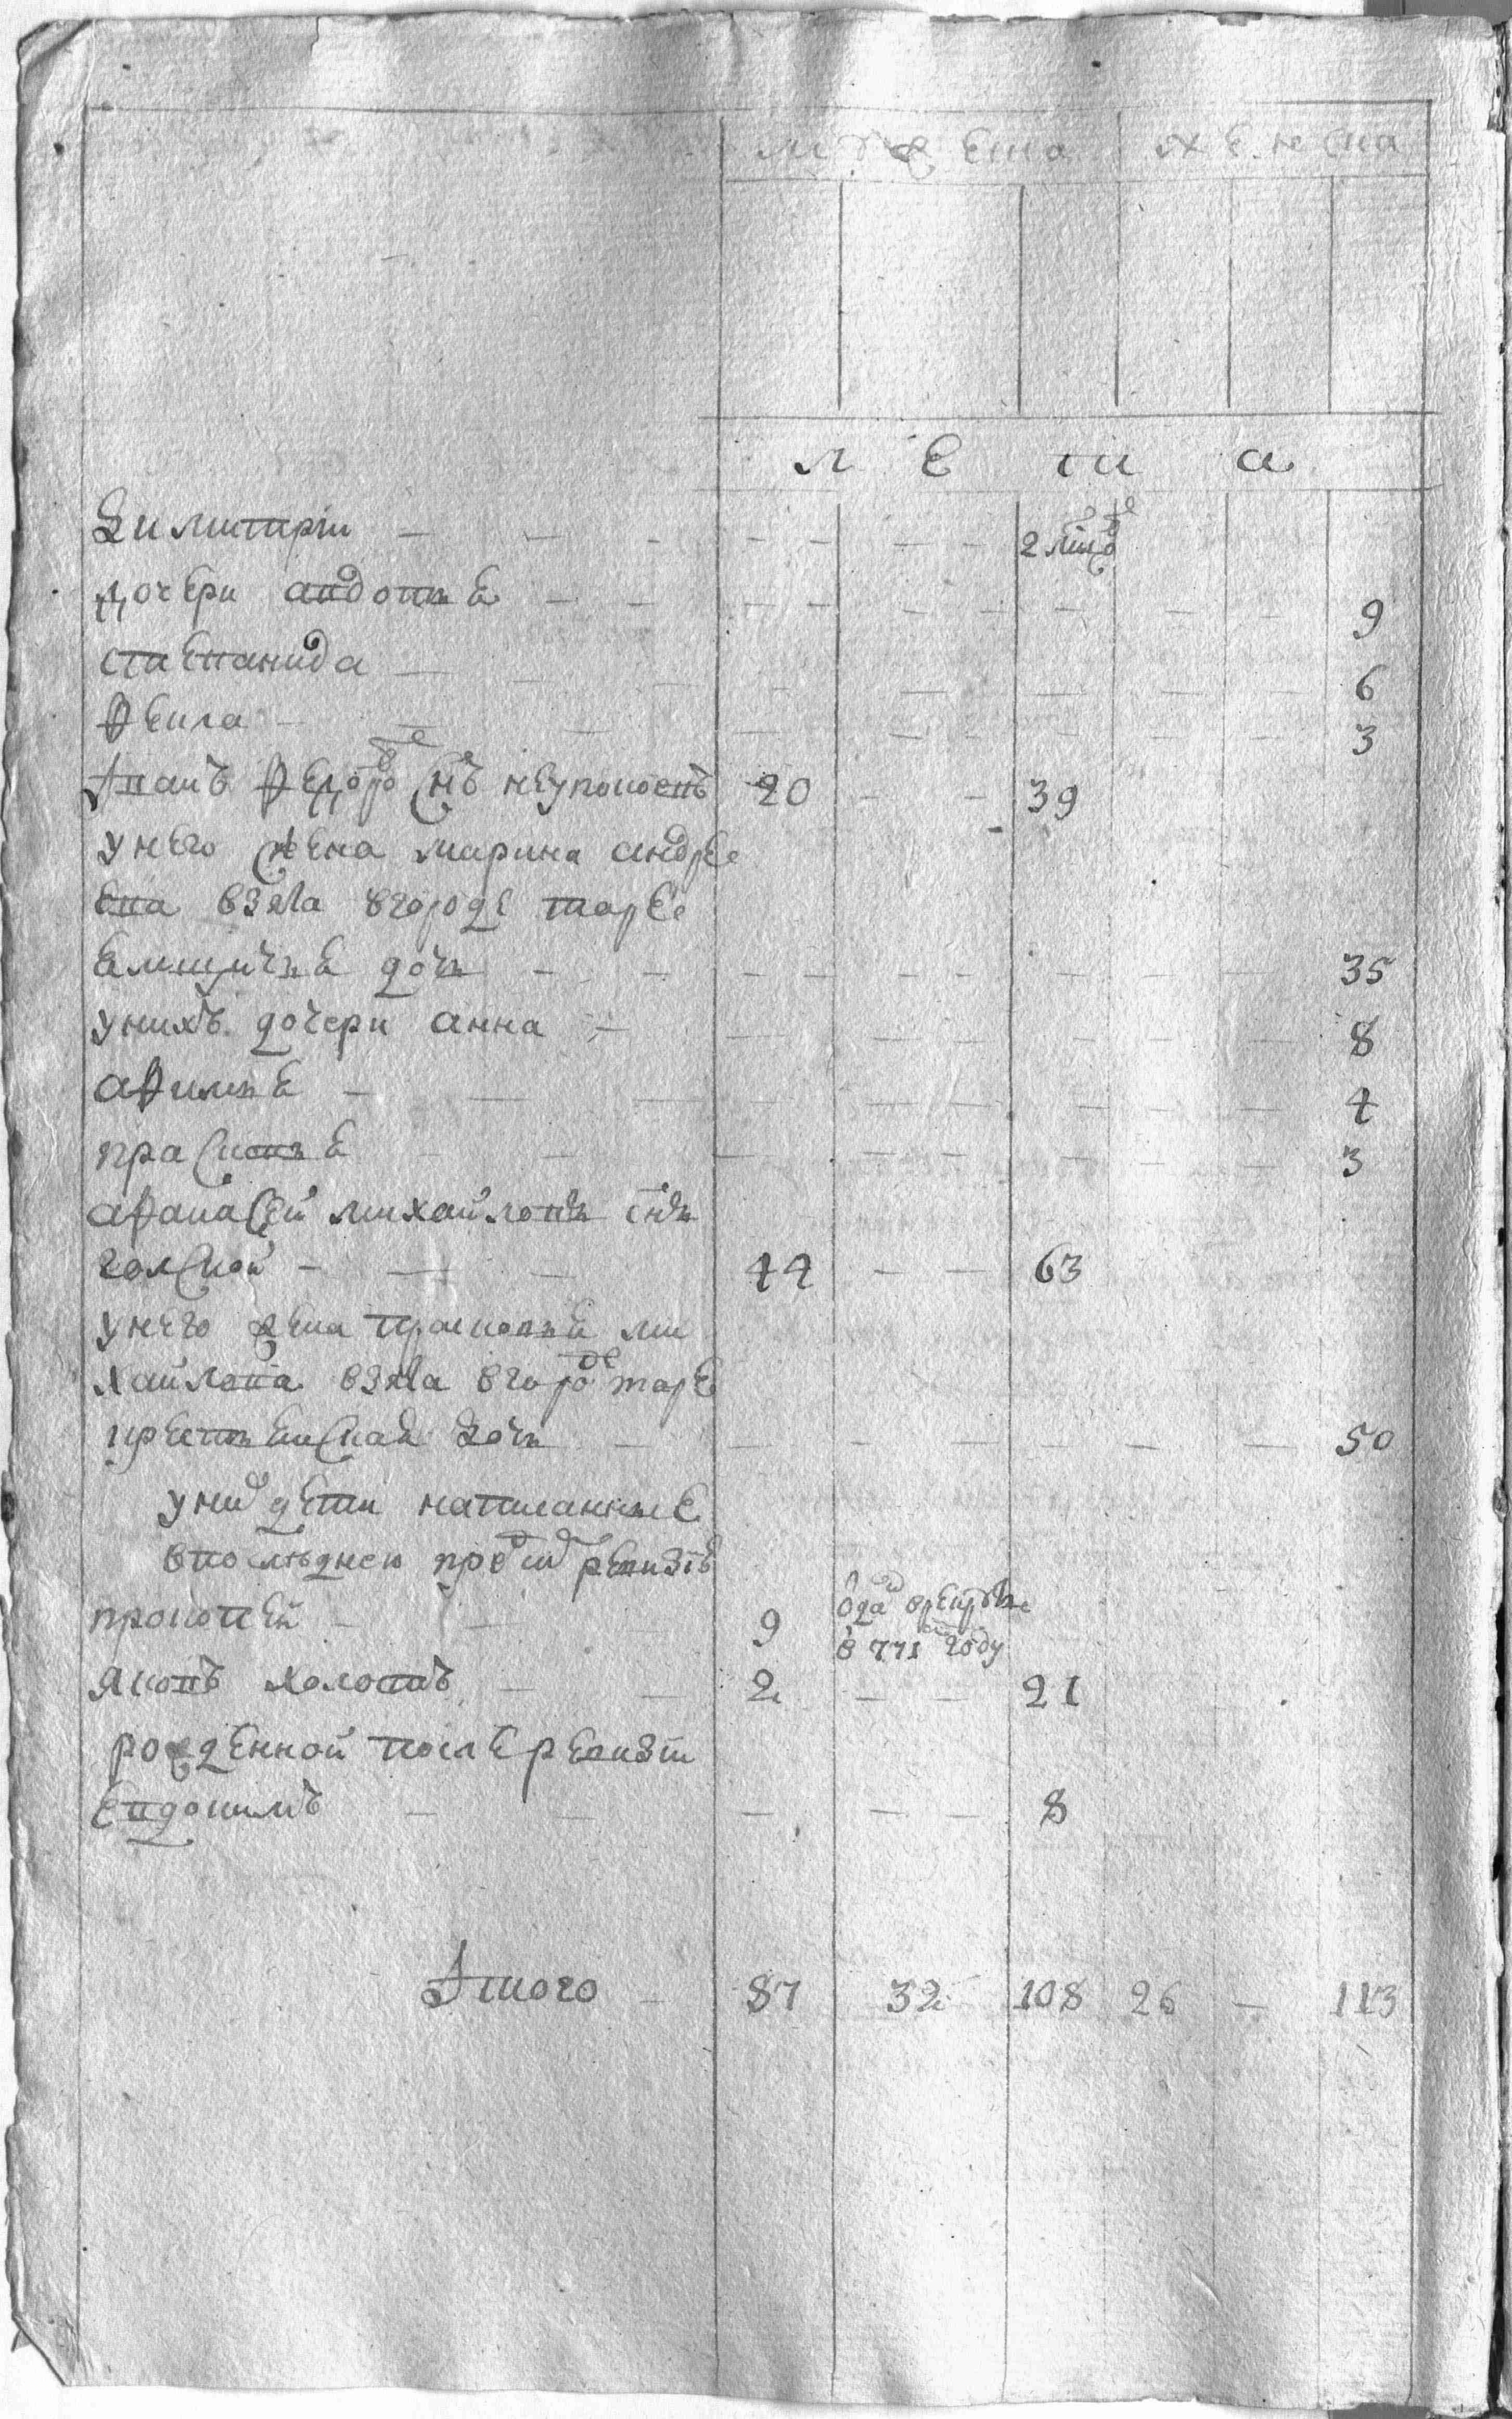 мужеска женска
лета
Димитрiй — — — — — — — 2 мѣсяцо
дочери авдотья — — — — — — — 9
степанида — — — — — — — 6
фекла — — — — — — — 3
Iванъ федоровъ снъ неупокоевъ 20 — — 39
унего жена марина андрее
вна взята вгороде таре
ямщичья дочь — — — — — — — 35
унихъ дочери анна — — — — — — 8
афимья — — — — — — — 4
прасковья — — — — — — — 3
афанасей михайловъ снъ
голской — — — 44 — — 63
унего жена прасковья ми
хайлова взята вгороде таре
крестьянская дочь — — — — — — — 50
уних дети написанные
впоследнею пред сим ревизiю
прокопей — — — 9 отдан врекруты
в 771 году
яковъ холостъ — — 2 — — 21
рожденной после ревизiи
Евдокимъ — — — — — 8
Iтого — 87 32 108 26 — 113